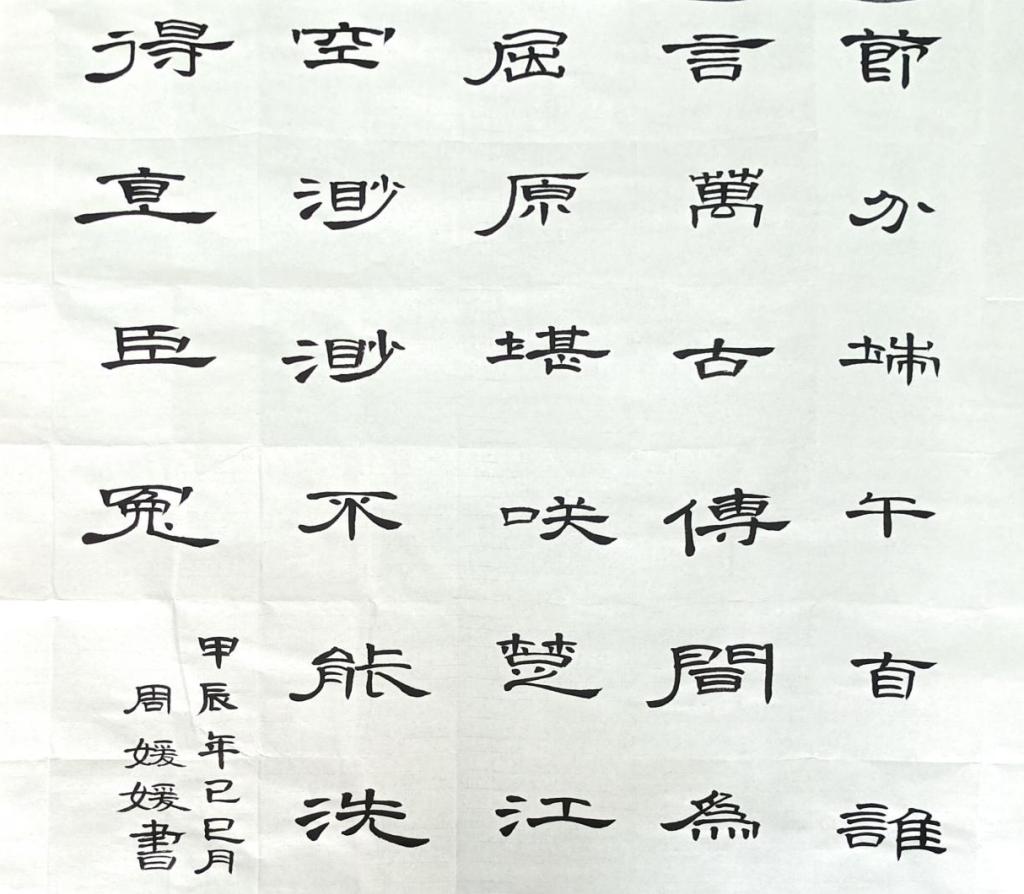 節分端午自誰
言萬古傳間為
屈原堪咲楚江
空渺渺不能洗
得直臣冤
甲辰年己巳月
周媛媛書